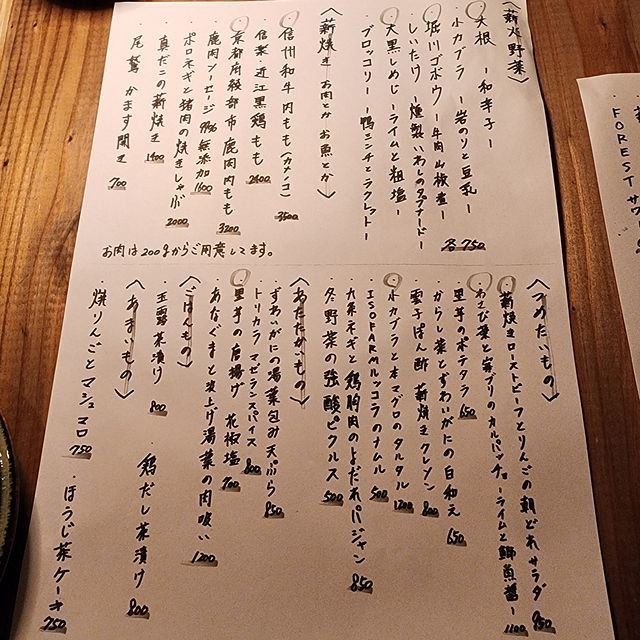 〈薪焼 野菜〉
・大根 ー和辛子ー
・小カブラ ー岩のりと豆乳ー
・堀川ゴボウ ー牛肉山椒煮ー
・しいたけ ー燻製いわしのタプナードー
・大黒しめじ ーライムと粗塩ー
・ブロッコリー ー鴨ミンチとラクレットー
各750
〈薪焼き お肉とか お魚とか〉
・信州和牛内もも(カメノコ) 3500
・信楽・近江黒鶏もも 2400
・京都府綾部市 鹿肉内もも 3200
・鹿肉ソーセージ 99%無添加 1600
・ポロネギと猪肉の焼きしゃぶ 2000
・真だこの薪焼き 1400
・尾鷲 かます開き 700
お肉は200gからご用意してます。
〈つめたいもの〉
・薪焼きローストビーフとりんごの朝どれサラダ 950
・わさび菜と寒ブリのカルパッチョ ーライムと鰤魚醤ー 1100
・里芋のポテサラ 650
・からし菜とずわいがにの白和え 650
・雲子ぽん酢 薪焼きクレソン 800
・小カブラと本マグロのタルタル 1200
・ISOFARMルッコラのナムル 500
・九条ネギと鶏胸肉のよだれパージャン 850
・冬野菜の強酸ピクルス 500
〈あたたかいもの〉
・ずわいがにの湯葉包み天ぷら 850
・トリカラ マゼランスパイス 800
・里芋の唐揚げ 花椒塩 700
・あなぐまと汲上げ湯葉の肉吸い 1200
〈ごはんもの〉
・玉露茶漬け 800
・鶏だし茶漬け 800
〈あまいもの〉
・焼りんごとマシュマロ 750
・ほうじ茶ケーキ 750
FORESTサワー